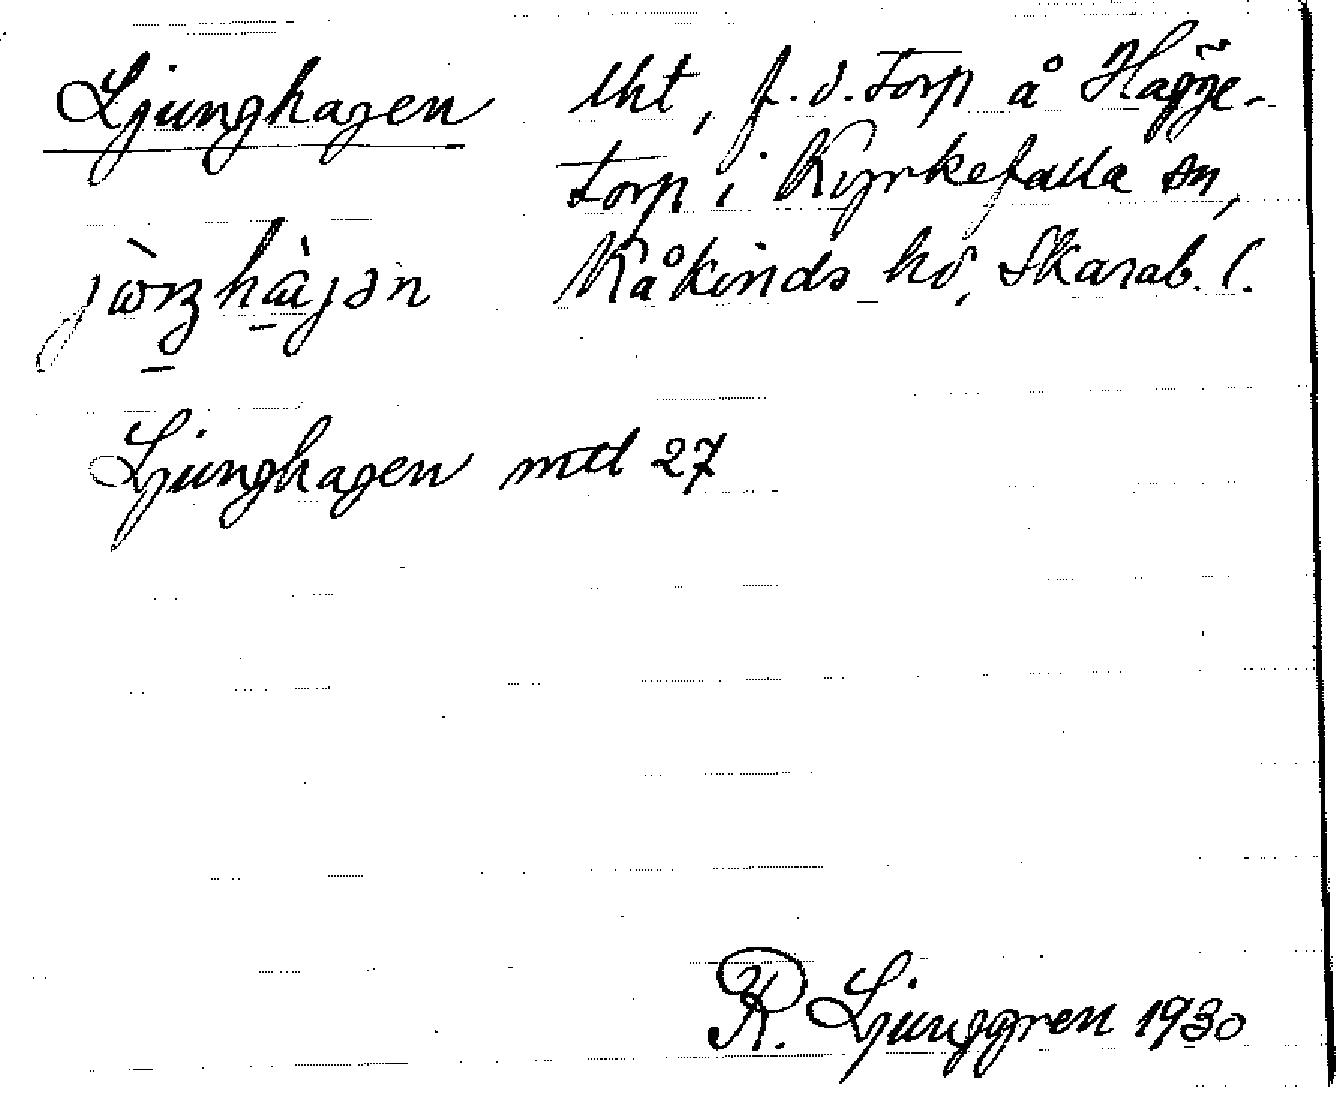 Ljunghagen lht, f.d. torp å Hagge-
torp i Kyrkefalla sn,
Kåkinds hd, Skarab. l.
Ljunghagen mtl 27
R. Ljunggren 1930